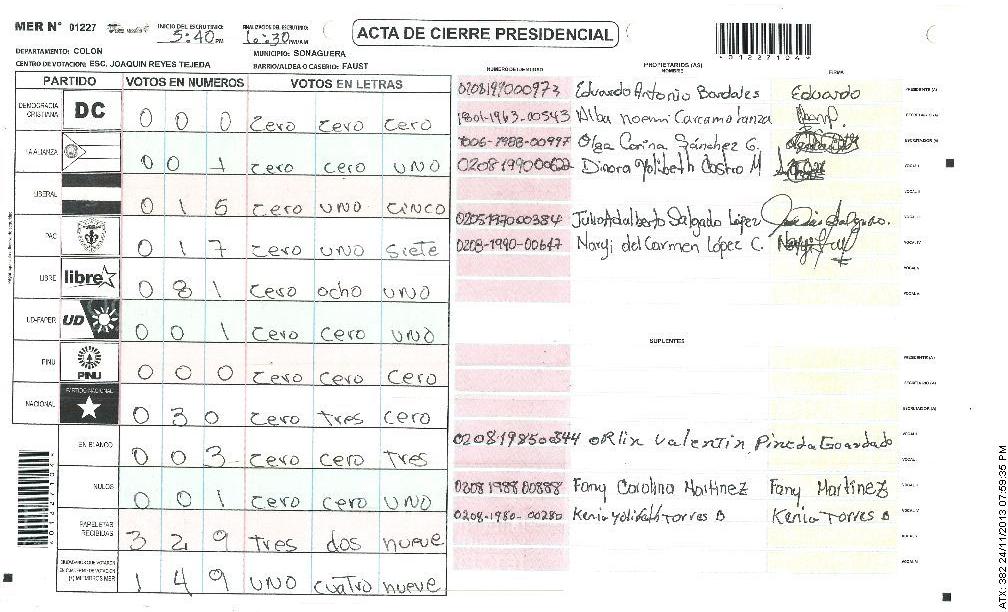 MER N° 01227 INICIO DEL ESCRUTINIO: 5:40 PM FINALIZACION DEL ESCRUTINIO: 6:30 PM/AM
ACTA DE CIERRE PRESIDENCIAL
01227104
DEPARTAMENTO: COLON MUNICIPIO: SONAGUERA
CENTRO DE VOTACION: ESC. JOAQUIN REYES TEJEDA BARRIO/ALDEA O CASERIO: FAUST
PARTIDO VOTOS EN NUMEROS VOTOS EN LETRAS
DEMOCRACIA CRISTIANA DC 0 0 0 cero cero cero
LA ALIANZA 0 0 1 cero cero UNO
LIBERAL 0 1 5 cero UNO CINCO
PAC 0 1 7 cero UNO siete
LIBRE libre 0 8 1 cero ocho UNO
UD-FAPER UD 0 0 1 cero cero UNO
PINU PINU 0 0 0 cero cero cero
NACIONAL PARTIDO NACIONAL 0 3 0 cero tres cero
EN BLANCO 0 0 3 cero cero tres
NULOS 0 0 1 cero cero UNO
PAPELETAS RECIBIDAS 3 2 9 tres dos nueve
CIUDADANOS QUE VOTARON EN CUADERNO DE VOTACION (+) MIEMBROS MER 1 4 9 UNO cuatro nueve
NUMERO DE IDENTIDAD PROPIETARIOS (AS) NOMBRE FIRMA
0208197000973 Eduardo Antonio Bardales Eduardo PRESIDENTE (A)
1801-1963-00543 Alba noemi Carcamo lanza SECRETARIO (A)
1006-1988-00997 Olga Corina Sánchez G. ESCRUTADOR (A)
Dinora Yolibeth Castro M VOCAL I
VOCAL II
0205197000384 Julio Adalberto Salgado López
0208-1990-00647 Nargi del Carmen López C. VOCAL IV
VOCAL V
SUPLENTES
PRESIDENTE (A)
SECRETARIO (A)
ESCRUTADOR (A)
0208198500844 orlin Valentin Pineda Goardado VOCAL I
0208198800888 Fany Carolina Martinez Fany Martinez
0208-1980-00280 Kenia Yolibeth Torres B Kenia Torres B
01227104
ATX: 382 24/11/2013 07:59:35 PM